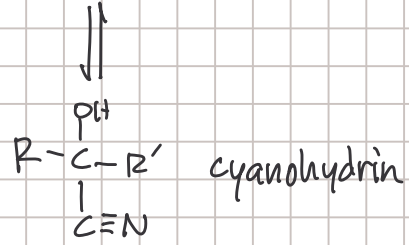 OH
R-C-R'
C≡N cyanohydrin